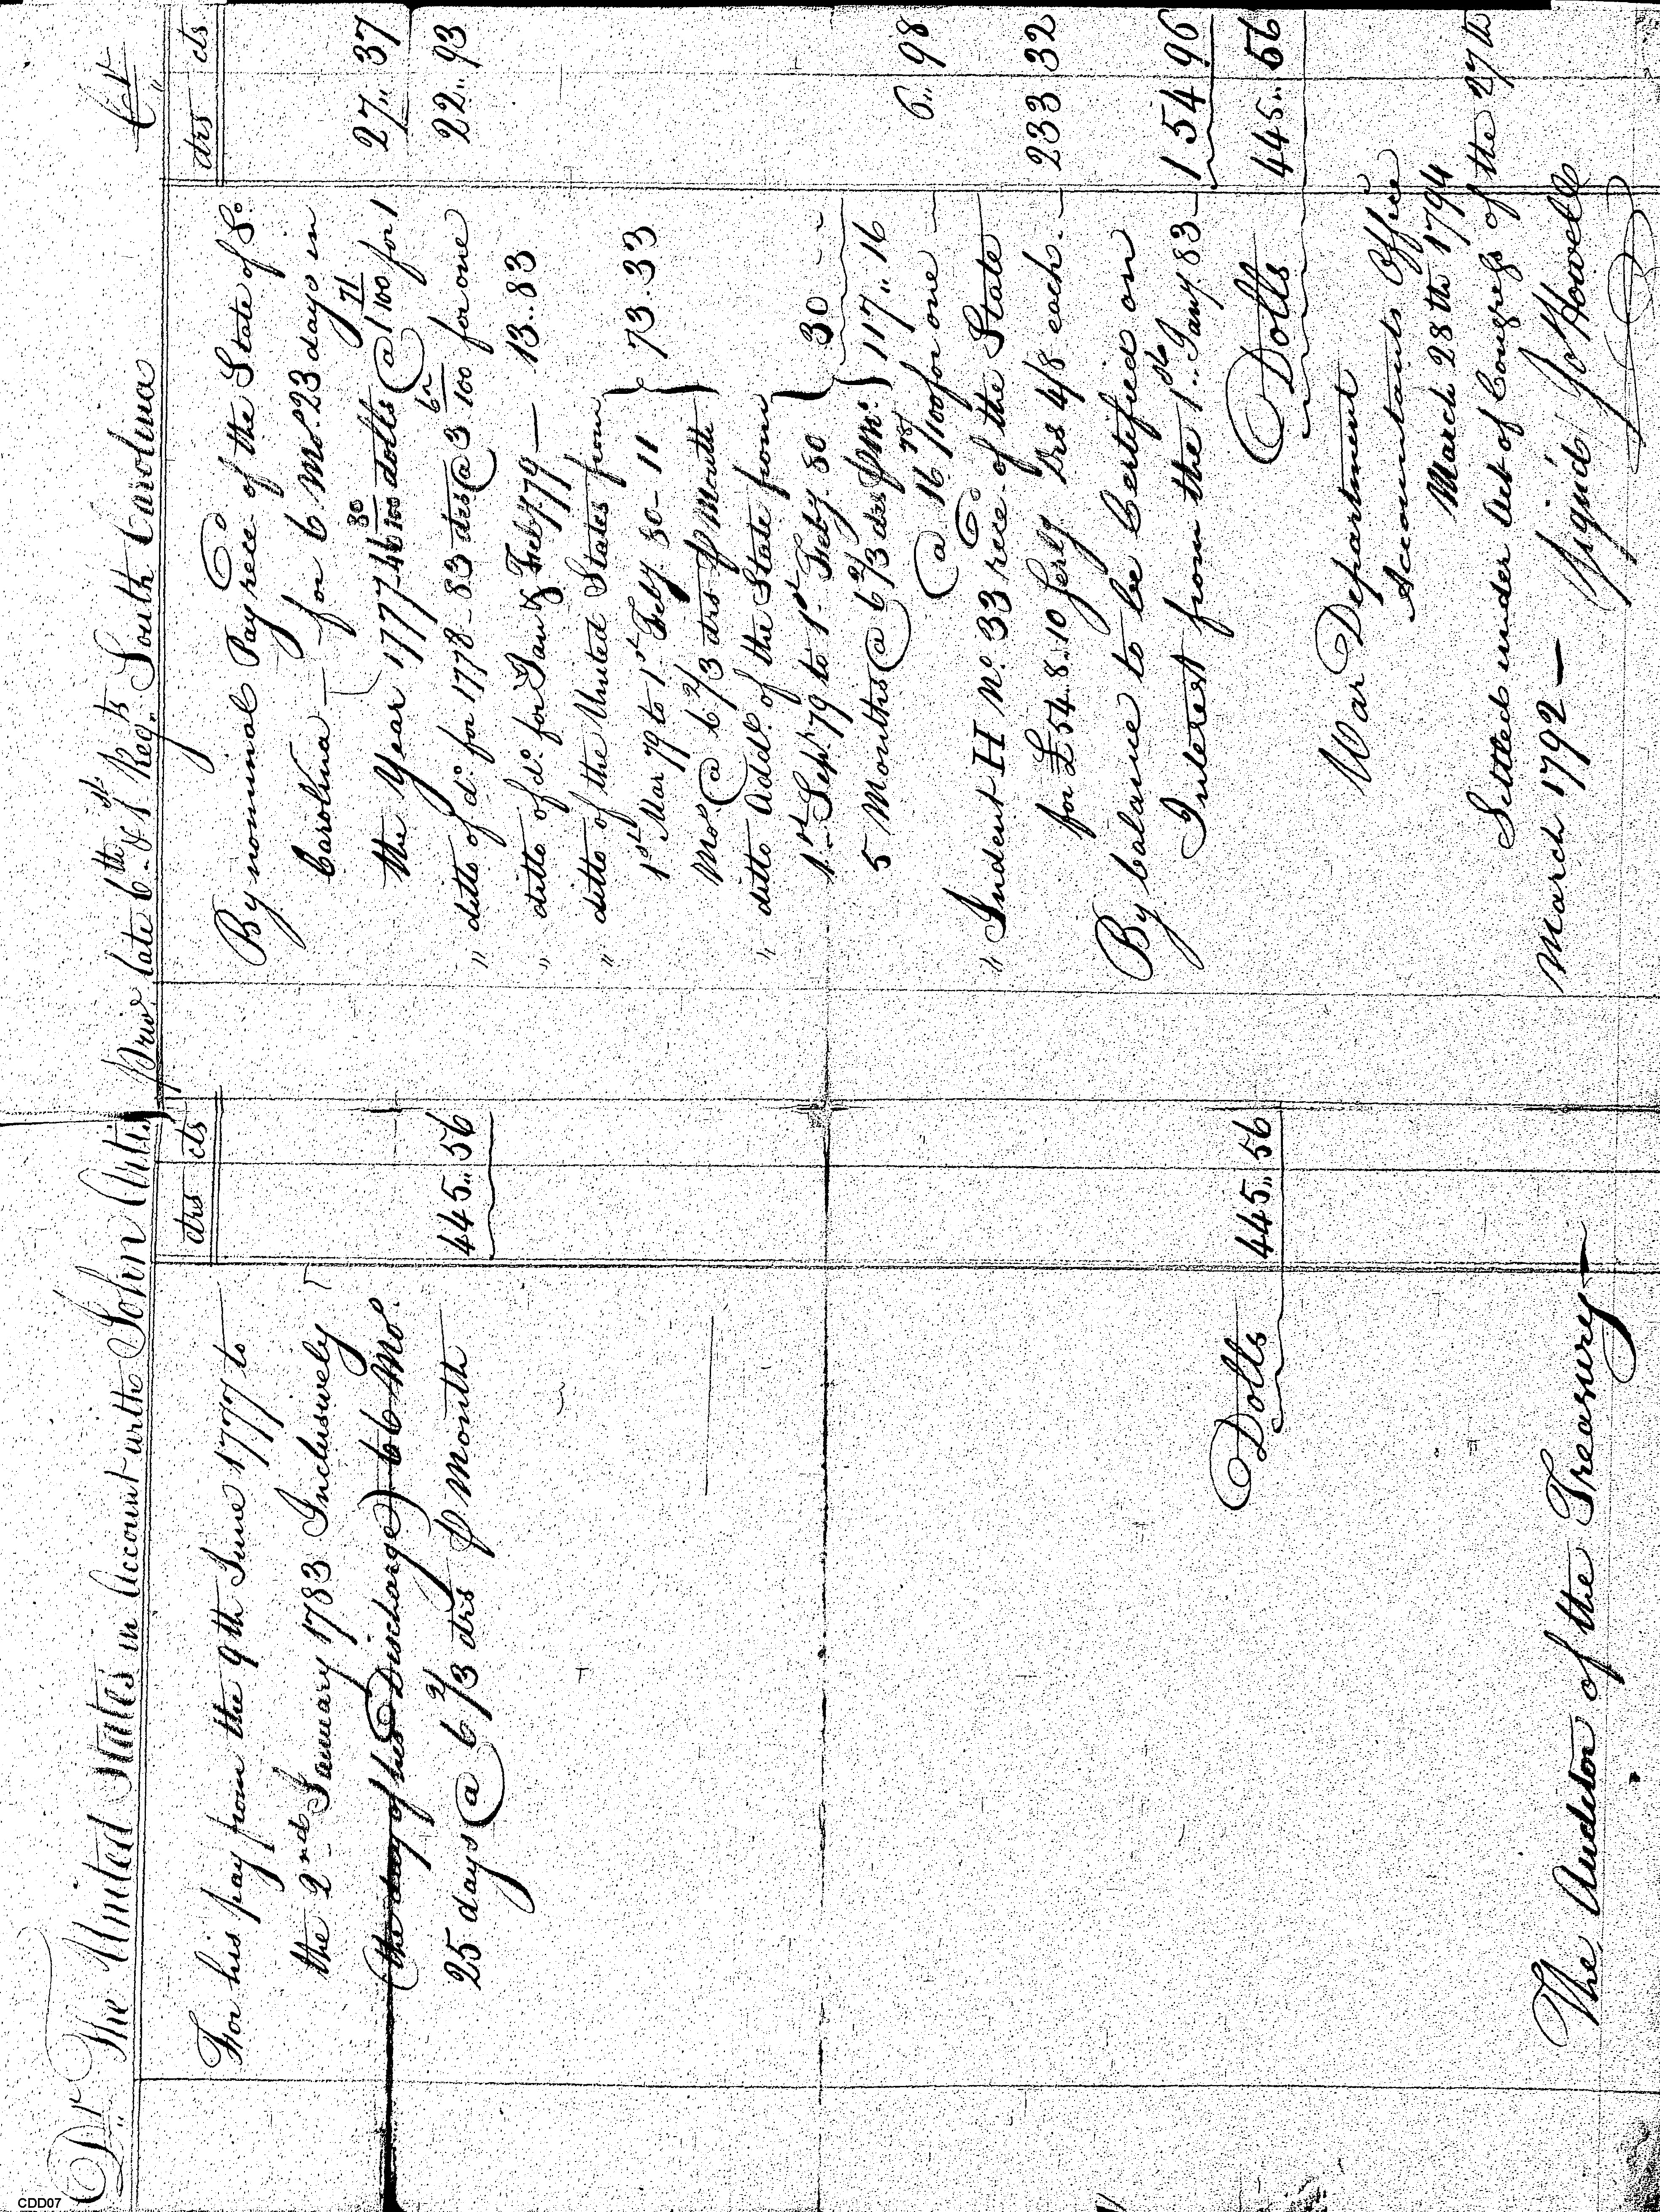 Dr The United States in Account with John Aiti Priv late 6th & 1st Regts South Carolina Cr
drs cts
For his pay from the 9th June 1777 to
the 2nd January 1783 Inclusively
(the day of his Discharge) 66 Mos.
25 days @ 6 2/3 drs P month 445.. 56
Dolls 445.. 56
The Auditor of the Treasury
drs cts
By nominal Pay rece'd of the State of So.
Carolina for 6 Mos. 23 days in
the Year 1777 46 80/100 dolls @ 1 71/100 for 1 27.. 37
" ditto of do. for 1778 - 83 drs @ 3 62/100 for one 22.. 93
" ditto of do. for Jan & Feby. 179 — 13.. 83
" ditto of the United States from
1st Mar 79 to 1st Feby. 80 - 11 } 73.. 33
Mos. @ 6 2/3 drs P Month
" ditto Addl. of the State from
1st Sept. 79 to 1st Feby. 80 } 30
5 Months @ 6 2/3 drs P Mo. } 117.. 16
@ 16 78/100 for one 6.. 98
" Indent H No. 33 rece'd of the State
for £54.. 8.. 10 Serlg Drs 4/8 each. 233 32
By balance to be Certified on
Interest from the 1st Jany 83 154 96
Dolls 445.. 56
War Department
Accountants Office
March 28th 1794
Settled under Act of Congress of the 27th
March 1792 —
Signed Jo Howell
CDD07